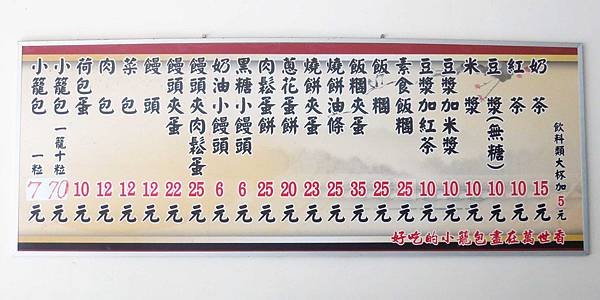 小籠包 一粒 7元
小籠包 一籠十粒 70元
荷包蛋 10元
肉包 12元
菜包 12元
饅頭 12元
饅頭夾蛋 22元
饅頭夾肉鬆蛋 25元
奶油小饅頭 6元
黑糖小饅頭 6元
肉鬆蛋餅 25元
蔥花蛋餅 20元
燒餅夾蛋 23元
燒餅油條 25元
飯糰夾蛋 35元
飯糰 25元
素食飯糰 25元
豆漿加紅茶 10元
豆漿加米漿 10元
米漿 10元
豆漿(無糖) 10元
紅茶 10元
奶茶 15元
飲料類大杯加5元
好吃的小籠包盡在萬世香